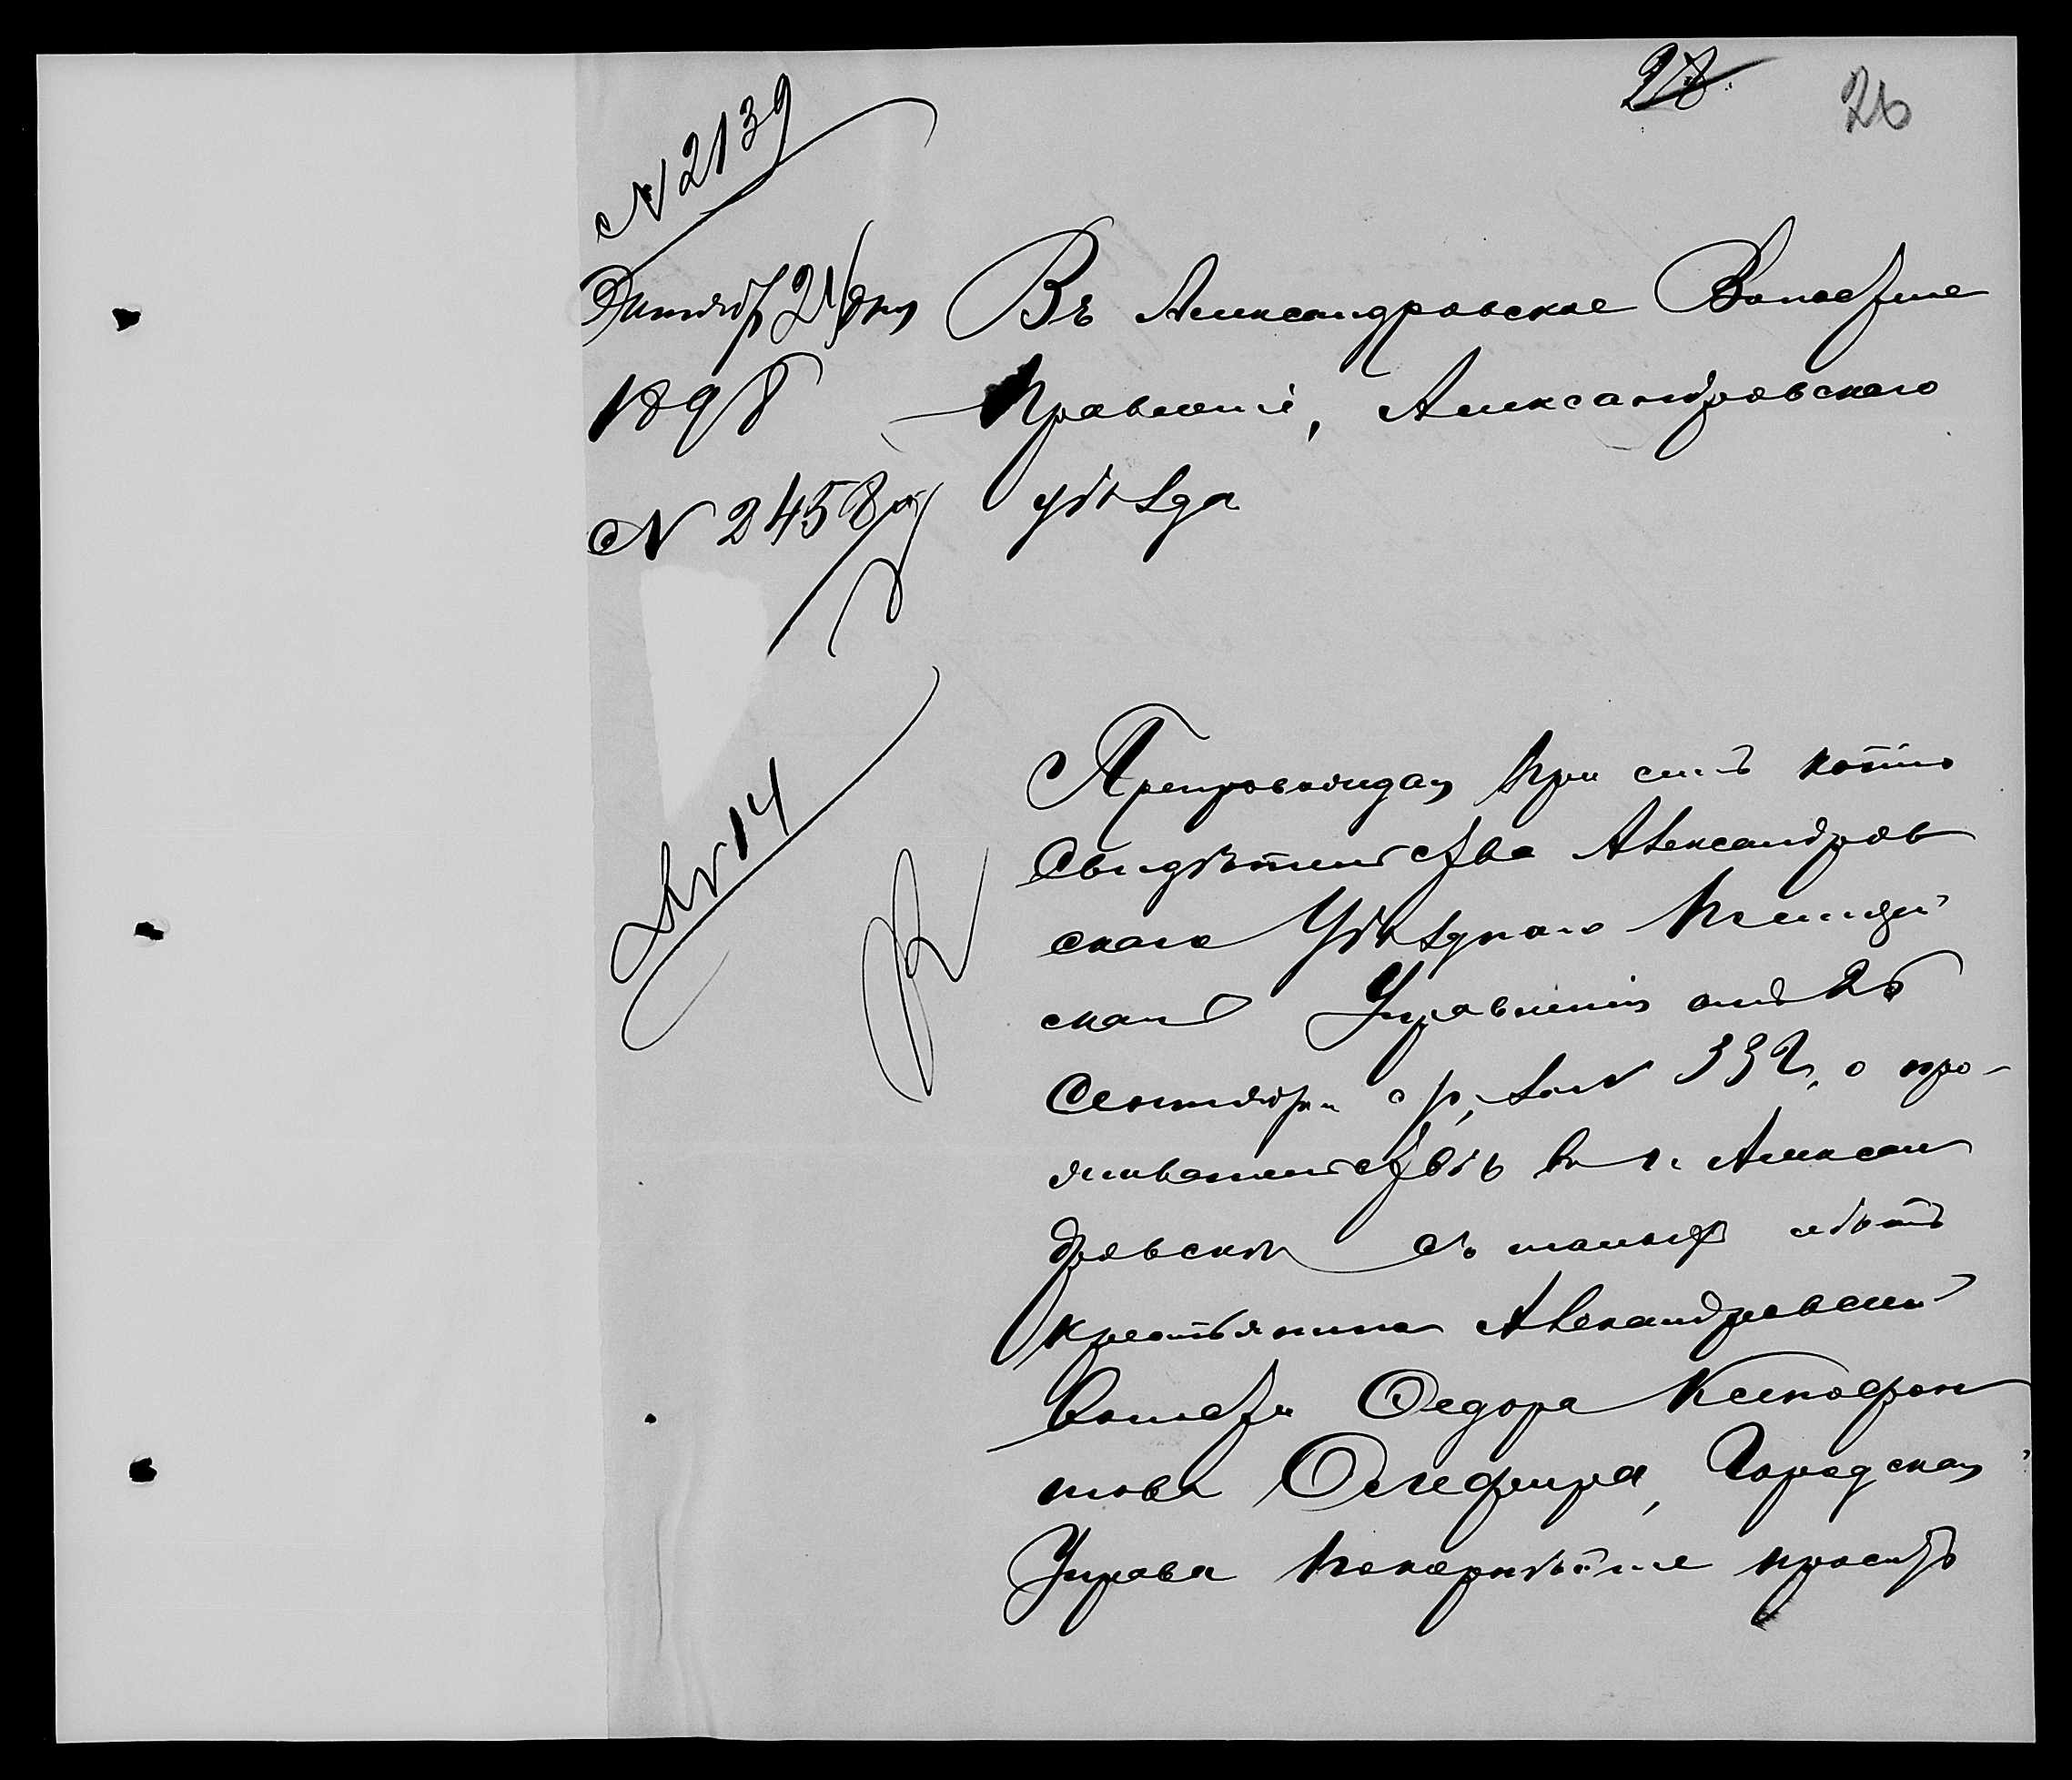 28
26
№ 2139
Октября 21 дня
1898
№ 2458
№ 14
Въ Александровское Волостное
Правленіе, Александровскаго
уѣзда
Препровождая при семъ копію
Свидѣтельства Александров
скаго Уѣзднаго Полицей
скаго Управленія отъ 26
Сентября с. г. за № 392, о про-
жительствѣ въ г. Алексан
дровскѣ лѣтъ
крестьянина Александровской
волости Ѳедора Ксенофон
това Олефира, Городская
Управа покорнѣйше проситъ